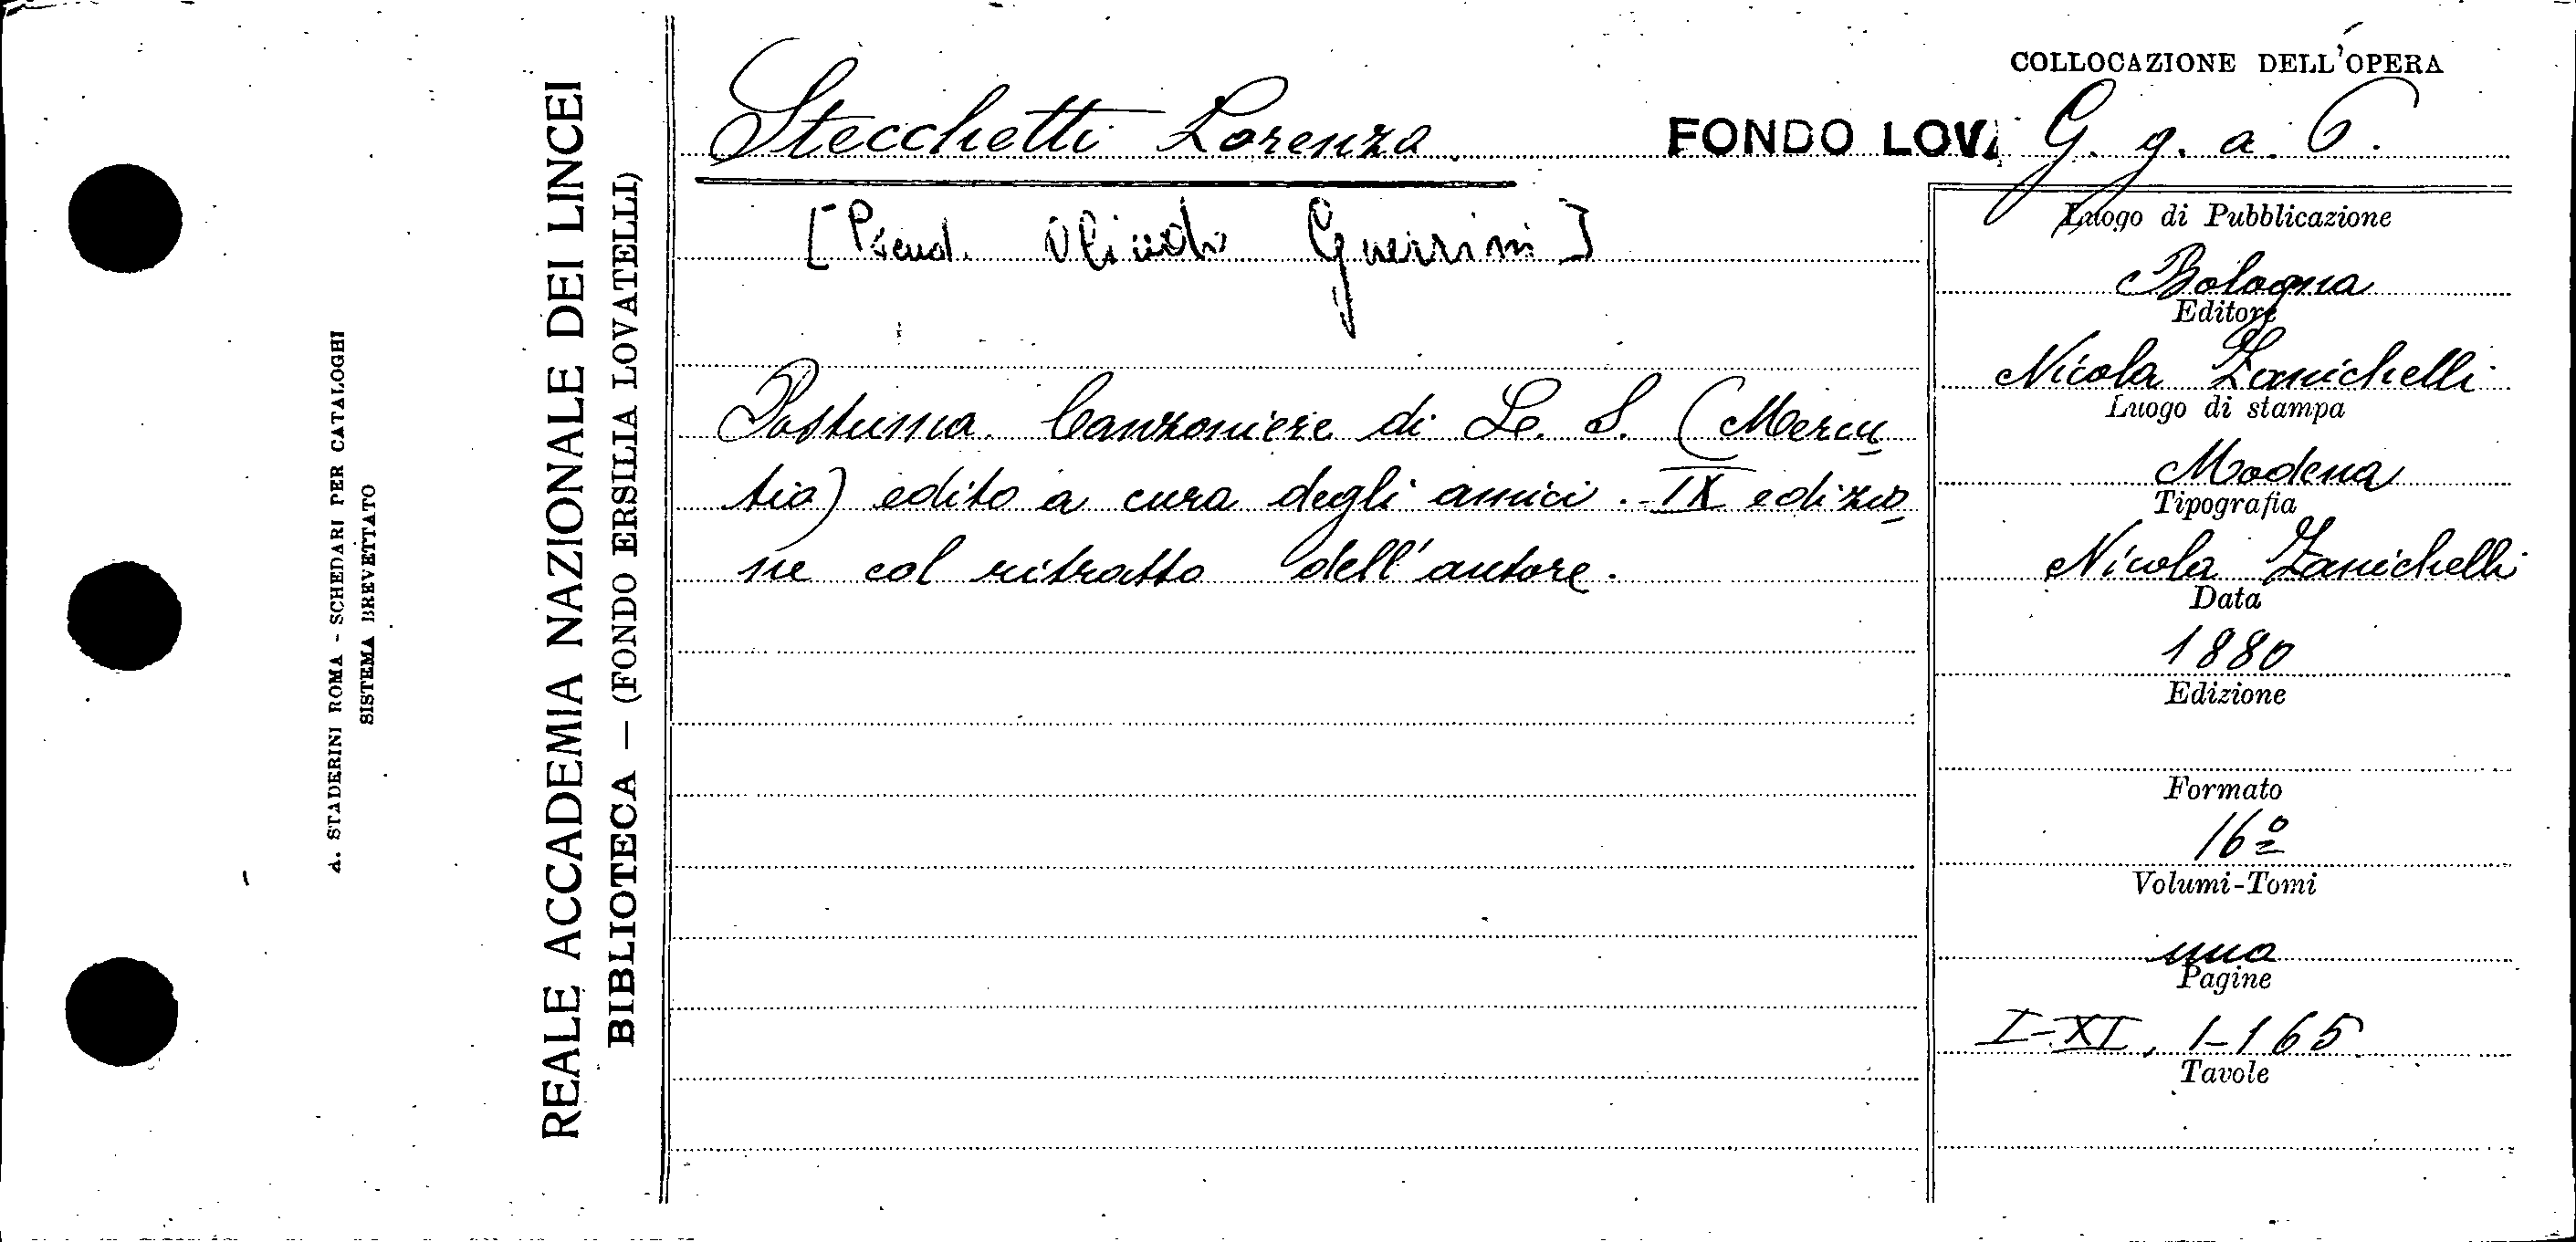 COLLOCAZIONE DELL'OPERA
Stecchetti Lorenzo
FONDO LOV. G. g. a. 6.
[Pseud. Olindo Guerrini]
Postuma. Canzoniere di L. S. (Mercu
tio) edito a cura degli amici. IX edizio
ne col ritratto dell'autore.
Luogo di Pubblicazione
Bologna
Editore
Nicola Zanichelli
Luogo di stampa
Modena
Tipografia
Nicola Zanichelli
Data
1880
Edizione
Formato
16º
Volumi-Tomi
uno
Pagine
I-XI, 1-165
Tavole
REALE ACCADEMIA NAZIONALE DEI LINCEI
BIBLIOTECA — (FONDO ERSILIA LOVATELLI)
A. STADERINI ROMA - SCHEDARI PER CATALOGHI
SISTEMA BREVETTATO